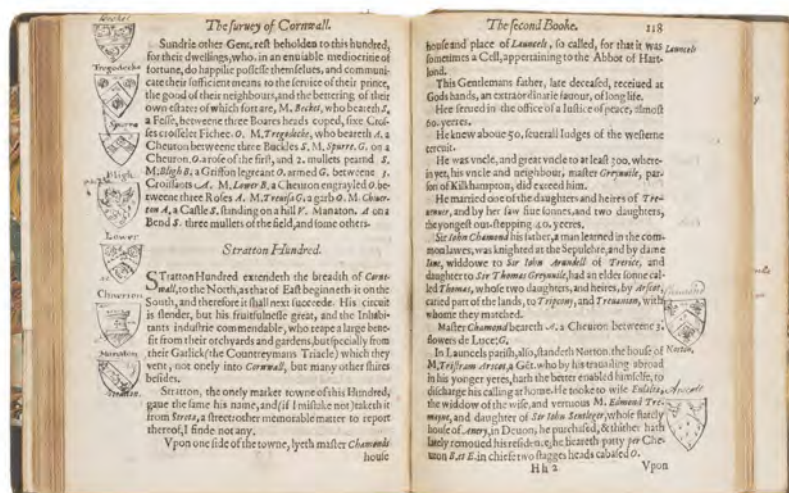 The suruey of Cornwall.
Becket
Sundrie other Gent. rest beholden to this hundred,
for their dwellings, who, in an enuiable mediocritie of
fortune, do happilie possesse themselues, and communi-
cate their sufficient means to the seruice of their prince,
the good of their neighbours, and the bettering of their
own estates of which sort are, M. Becket, who beareth S.
a Fesse, betweene three Boares heads coped, sixe Cros-
ses crosselet Fichee O. M. Tregodecke, who beareth A. a
Cheuron betweene three Buckles S. M. Spurre. G. on a
Cheuron O. a rose of the first, and 2. mullets pearnd S.
M. Bligh B. a Griffon legreant O. armed G. betweene 3.
Croissants A. M. Lower B. a Cheuron engrayled O. be-
tweene three Roses A. M. Treuisa G. a garb O. M. Chiuer-
ton A. a Castle S. standing on a hill V. Manaton. A on a
Bend S. three mullets of the field, and some others.
Tregodecke
Spurre
Bligh
Lower
Chuerton
Manaton
Stratton Hundred.
Stratton Hundred extendeth the breadth of Corne-
wall, to the North, as that of East beginneth it on the
South, and therefore it shall next succeede. His circuit
is slender, but his fruitfulnesse great, and the Inhabi-
tants industrie commendable, who reape a large bene-
fit from their orchyards and gardens, but specially from
their Garlick (the Countreymans Triacle) which they
vent, not onely into Cornwall, but many other shires
besides.
Stratton.
Stratton, the onely market towne of this Hundred,
gaue the same his name, and (if I mistake not) taketh it
from Streta, a street: other memorable matter to report
thereof, I finde not any.
Vpon one side of the towne, lyeth master Chamonds
house
The second Booke.
118
house and place of Launcels, so called, for that it was
sometimes a Cell, appertaining to the Abbot of Hart-
lond.
Launcels
This Gentlemans father, late deceased, receiued at
Gods hands, an extraordinarie fauour, of long life.
He serued in the office of a Iustice of peace, almost
60. yeeres.
He knew aboue 50, seuerall Iudges of the westerne
circuit.
He was vncle, and great vncle to at least 300. where-
in yet, his vncle and neighbour, master Greynuile, par-
son of Kilkhampton, did exceed him.
He married one of the daughters and heires of Tre-
uenner, and by her saw fiue sonnes, and two daughters,
the yongest out-stepping 40. yeeres.
Sir Iohn Chamond his father, a man learned in the com-
mon lawes, was knighted at the Sepulchre, and by dame
Iane, widdowe to Sir Iohn Arundell of Trerice, and
daughter to Sir Thomas Greynuile, had an elder sonne cal-
led Thomas, whose two daughters, and heires, by Arscot,
caried part of the lands, to Tripcony, and Treuanion, with
whome they matched.
Chamond
Master Chamond beareth A. a Cheuron betweene 3.
flowers de Luce: G.
In Launcels parish, also, standeth Norton. the house of
M. Tristram Arscot, a Gēt. who by his trauailing abroad
in his yonger yeres, hath the better enabled himselfe, to
discharge his calling at home. He tooke to wife Eulalia,
the widdow of the wise, and vertuous M. Edmond Tre-
mayne, and daughter of Sir Iohn Sentleger, whose stately
house of Anery, in Deuon, he purchased, & thither hath
lately remoued his residence, he beareth party per Che-
uron B. et E. in chiefe two stagges heads cabased O.
Norton.
Arscote
Hh 2
Vpon